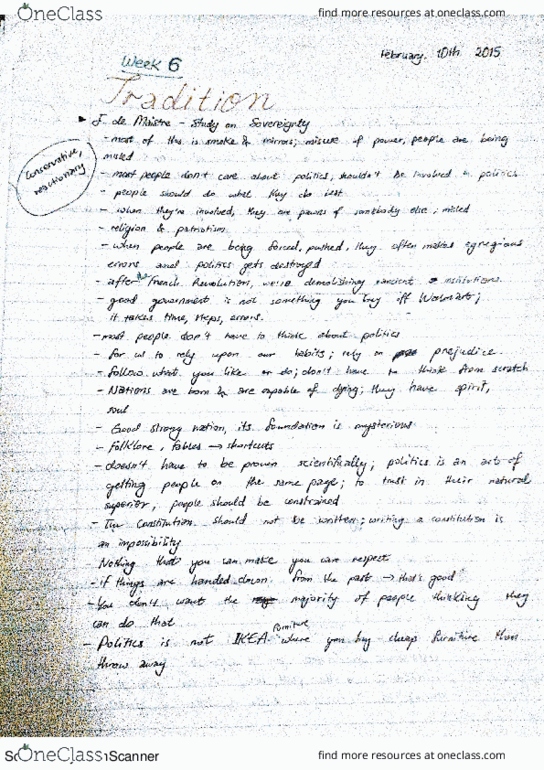 OneClass find more resources at oneclass.com
February, 10th 2015
Week 6
Tradition
▸ J. de Maistre - Study on Sovereignty
- most of this is smoke & mirrors; misuse of power, people are being
misled
Conservative,
reactionary
- most people don't care about politics, shouldn't be involved in politics
- people should do what they do best
- when they're involved, they are pawns of somebody else; misled
- religion & patriotism
- when people are being forced, pushed, they often makes egregious
errors and politics gets destroyed
- after the French Revolution, we're demolishing ancient institutions.
- good government is not something you buy off Walmart;
it takes time, steps, errors.
- most people don't have to think about politics
- for us to rely upon our habits; rely on prejudice
- follow what you like or do; don't have to think from scratch
- Nations are born & are capable of dying; they have spirit,
soul
- Good strong nation, its foundation is mysterious
- folklore, fables → shortcuts
- doesn't have to be proven scientifically; politics is an act of
getting people on the same page; to trust in their natural
superior; people should be constrained
- The Constitution should not be written; writing a constitution is
an impossibility
Nothing that you can make you can respect
- if things are handed down from the past → that's good
- You don't want the majority of people thinking they
can do that
- Politics is not IKEA furniture where you buy cheap furniture then
throw away
OneClass Scanner find more resources at oneclass.com